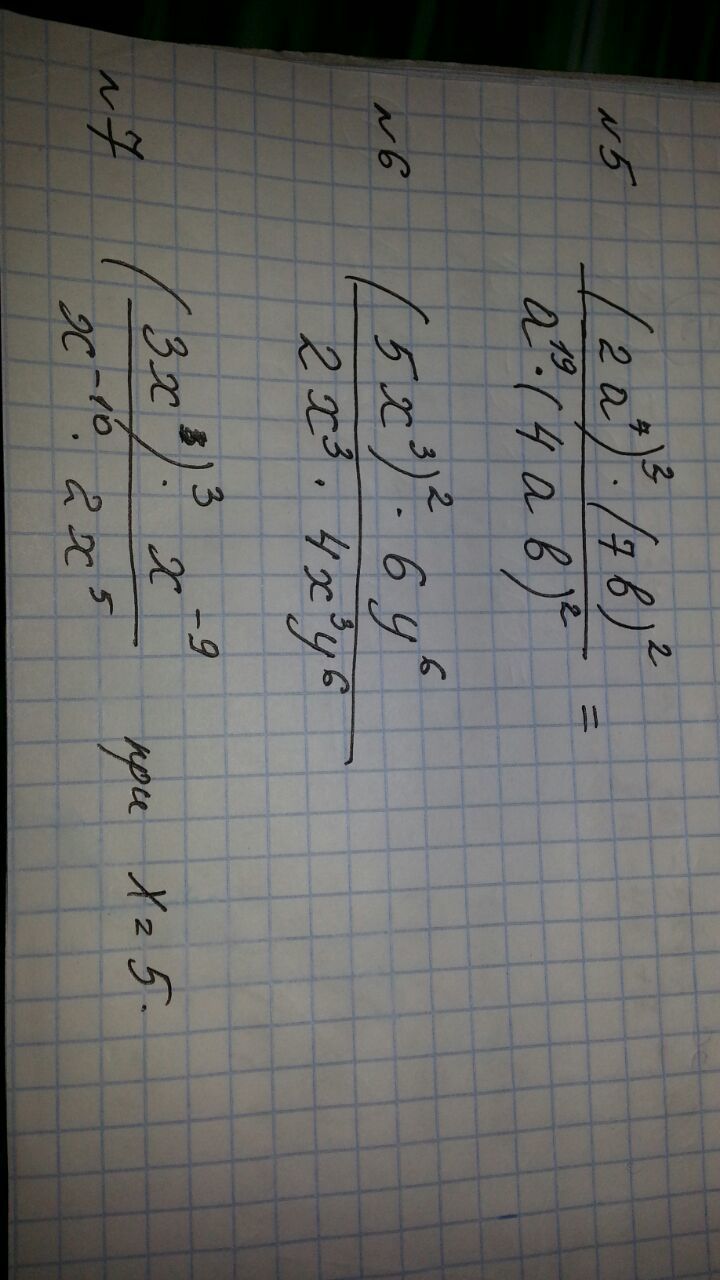 №5
(2a⁷)³·(7b)²
a¹⁹·(4ab)² =
№6
(5x³)²·6y⁶
2x³·4x³y⁶
№7
(3x³)³·x⁻⁹
x⁻¹⁰·2x⁵ при x=5.